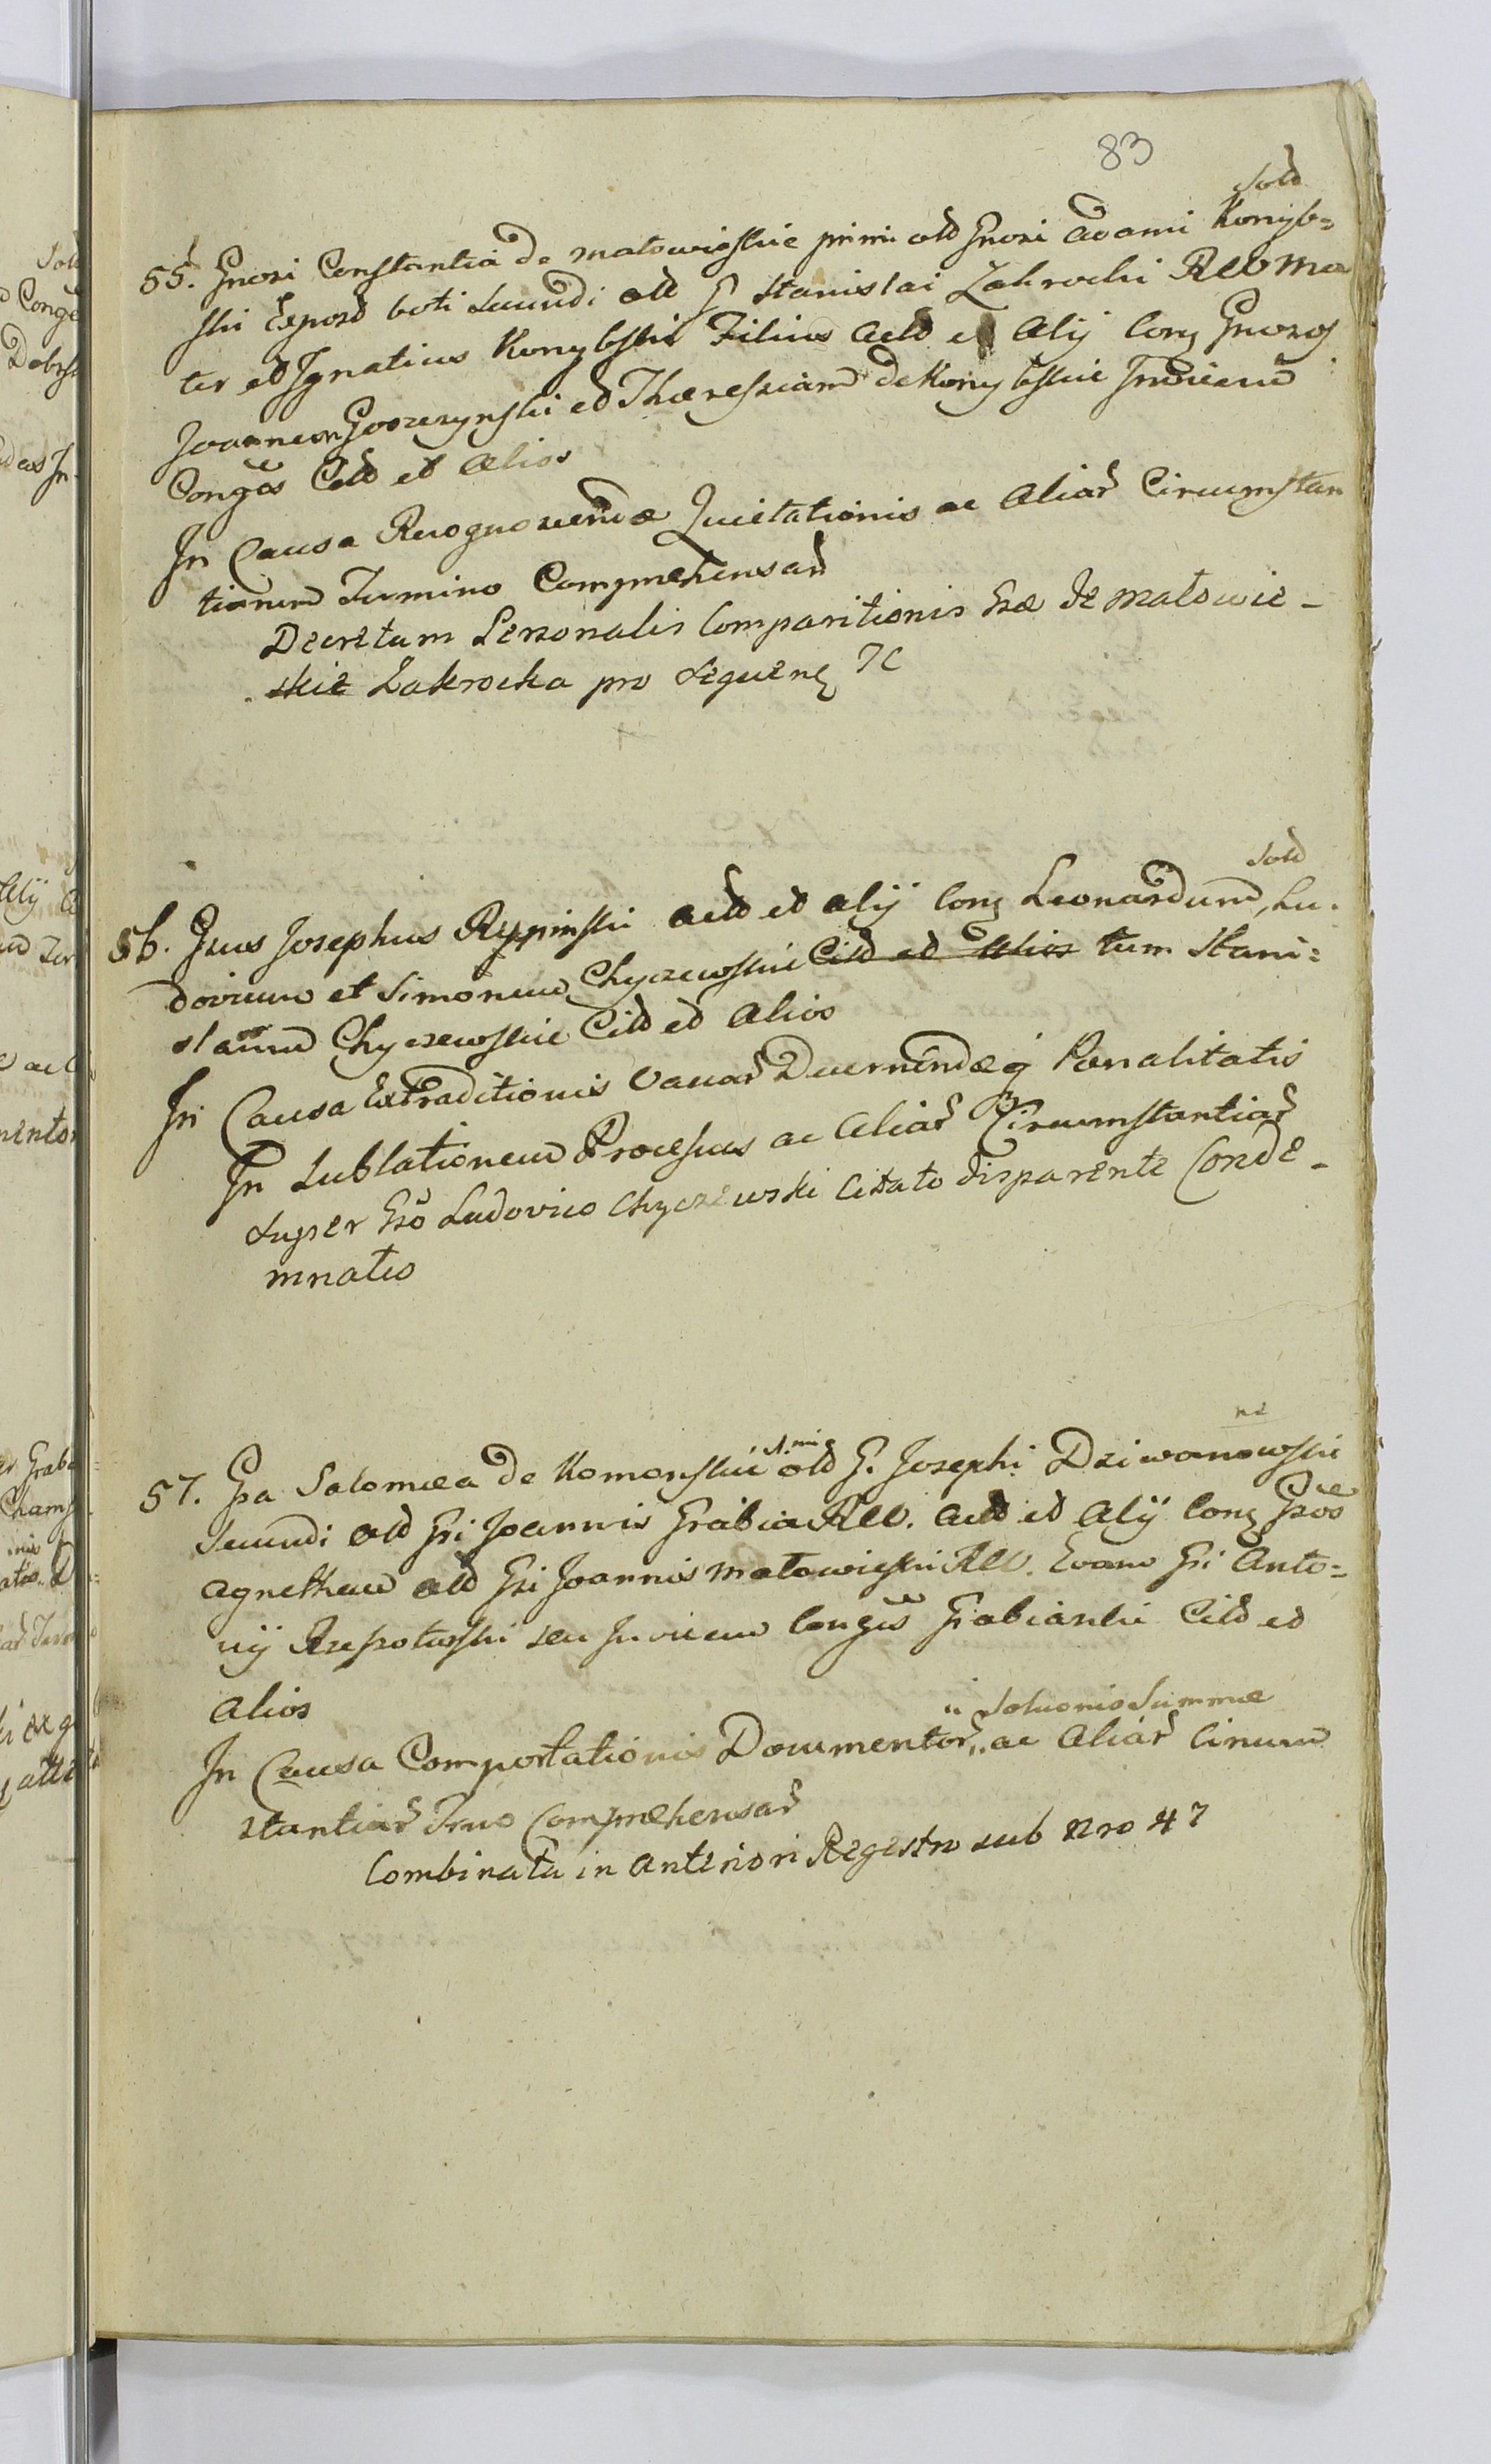 83
Sold
55. Gnosi Constantia de Matowieskie primi old Gnosi Adami Konyb=
ski Exposd voti Secundi old G Stanislai Zakrocki Rel Ma
ter et Ignatius Konybski Filius Actd et Alij Conq Gnosos
Joannem Goszczynski ed Theressiam de Konybskie Invicem
Congēs Citd ed Alios
In Causa Recognoscendæ Quietationis ac Aliar Circumstan
tiarum Termino Comprehensar
Decretum Personalis Comparitionis Gsæ de Matowie-
skie Zakrocka pro Sequenq
Sold
56. Gsus Josephus Rypinski Actd ed Alij Conq Leonardum, Lu.
dovicum et Simonem Chyczewskie Citd ed Alios tum Stani=
slaum Chyczewskie Citd ed Alios
In Causa Extraditionis Vacar Decernendæq Pœnalitatis
In Sublationem Processus ac Aliar Circumstantiar
Super Gso Ludovico Chyczewski Citato disparente Conde-
mnatio
57. Gsa Salomea de Komorskie 1.mi old G. Josephi Dziwanowskie
Secundi old Gsi Joannis Grabia Rel. Actd ed Alij Conq Gsos
Agnethem old Gsi Joannis Matowieski Rel. Evam Gsi Anto=
nij Rzeszotarski seu Invicem Congēs Grabianki Citd ed
Alios
" Solutionis Summæ
In Causa Comportationis Documentor " ac Aliar Circum
stantiar Trno Comprehensar
Combinata in Anteriori Regestro sub Nro 47